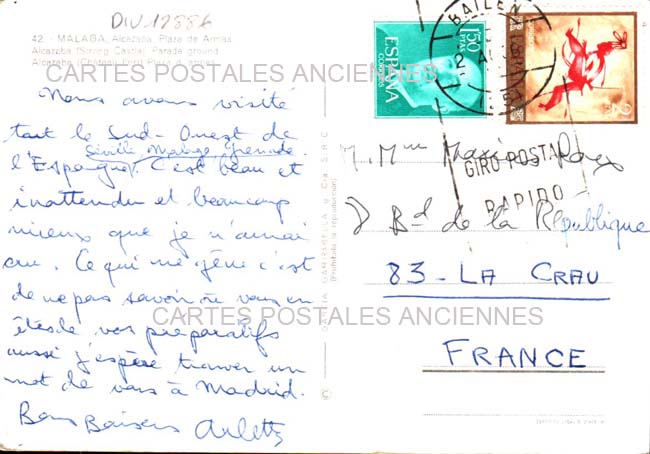 DIV 12886
42. - MALAGA, Alcazaba. Plaza de Armas
Alcazaba (Strong Castle). Parade ground
Alcazaba (Château Fort) Place d'armes
CARTES POSTALES ANCIENNES
Nous avons visité
tout le Sud-Ouest de
Séville Malaga Grenade
l'Espagne. C'est beau et
inattendu et beaucoup
mieux que je n'aurai
cru. Ce qui me gêne c'est
de ne pas savoir où vous en
êtes de vos préparatifs
aussi j'espère trouver un
mot de vous à Madrid.
Bons Baisers Arlette
GARCIA GARRABELLA y Cía.
(Prohibida la reproducción)
1'50
PTAS
ESPAÑA
CORREOS
BAILEN
2
GIRO POSTAL
RAPIDO
M. Mme
Bd de la République
83 - LA CRAU
CARTES POSTALES ANCIENNES
FRANCE